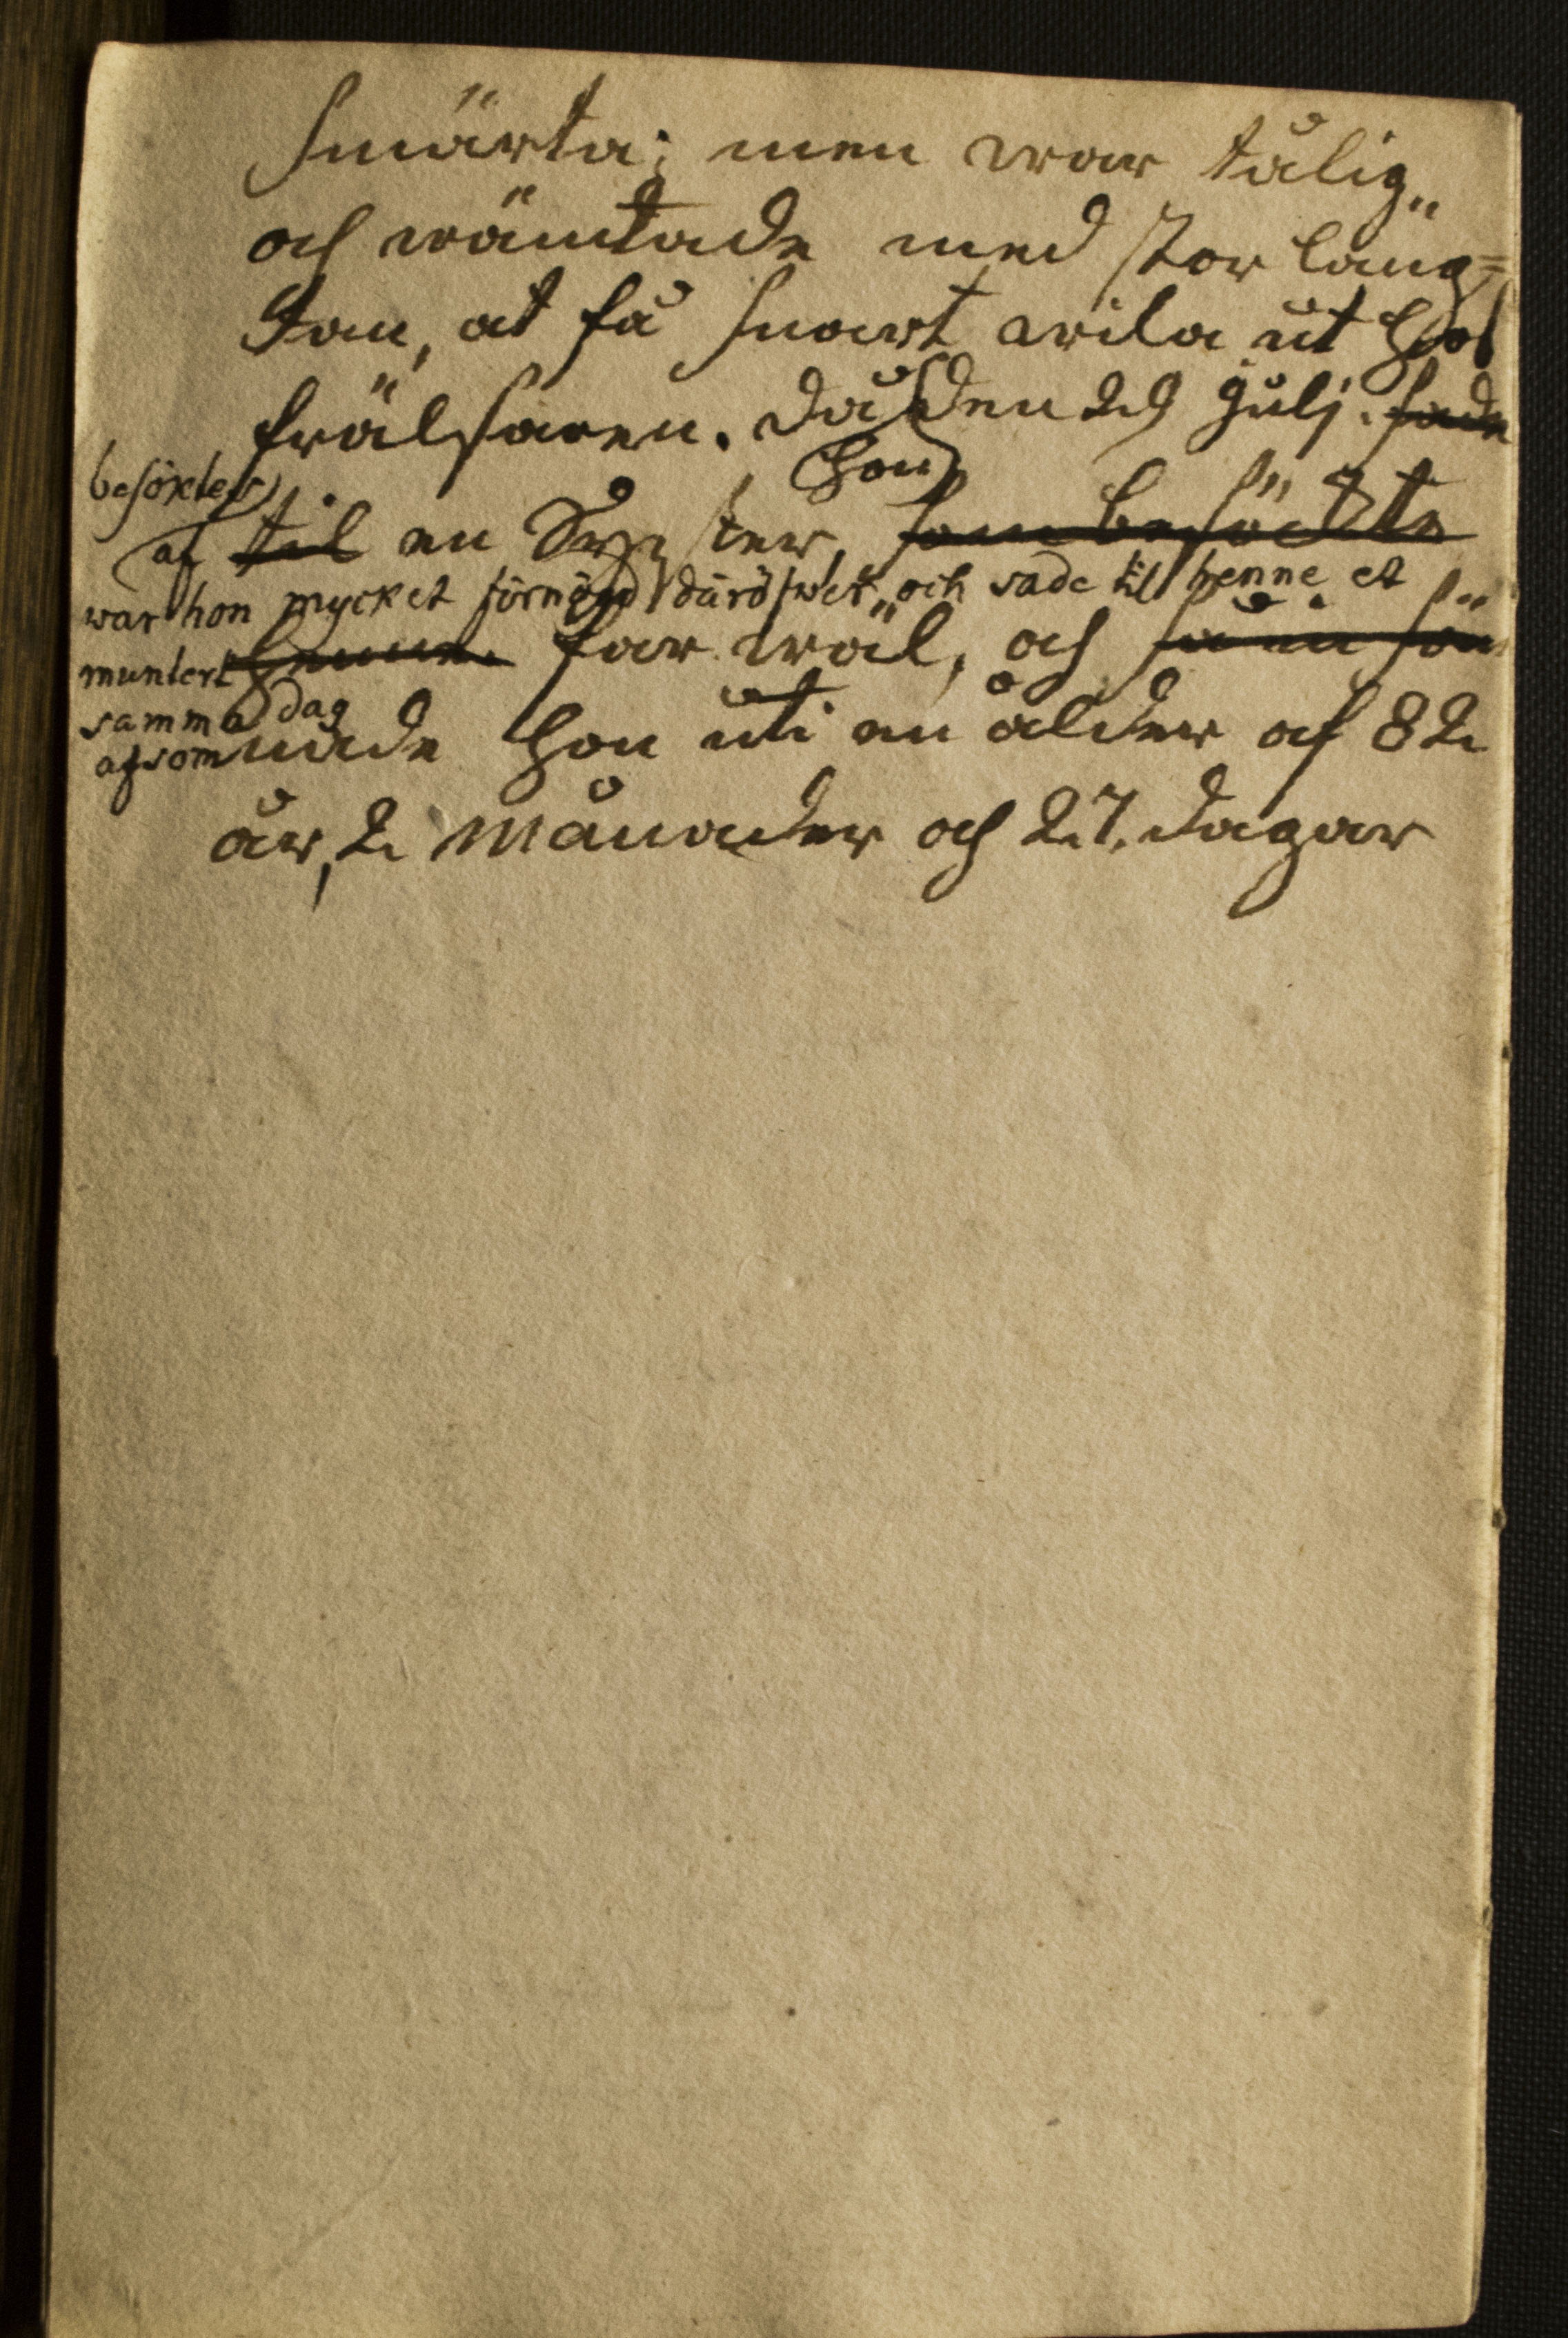 smärta; men war tålig,,
och wäntade med stor läng=
tan, at få snart wila ut hos
frälsaren. Då hon den 29 Julj. sade
besöktes
af til en Syster, som besöckte
war hon mycket förnögd däröfwer och sade til henne et
muntert henne. far wäl, och
samma dag
afsomnade hon uti en ålder af 82
år, 2 Månader och 27. dagar